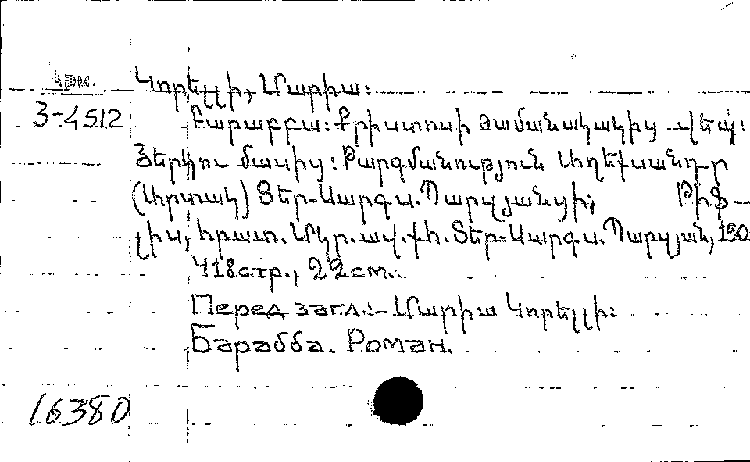 Կորելլի, Մարիա:
3-4512
Բարաբբա: Քրիստոսի ժամանակակից վեպ:
Յերկու մասից: Թարգմանություն Ալեքսանդր
(Արտակ) Տեր-Սարգս.Պարսյանցի, Թիֆ-
լիս, հրատ. Մկր. ավ. քհ. Տեր-Սարգս.Պարսյան, 190
418стр., 22см.
Перед загл.: Մարիա Կորելլի:
Барабба. Роман.
16380